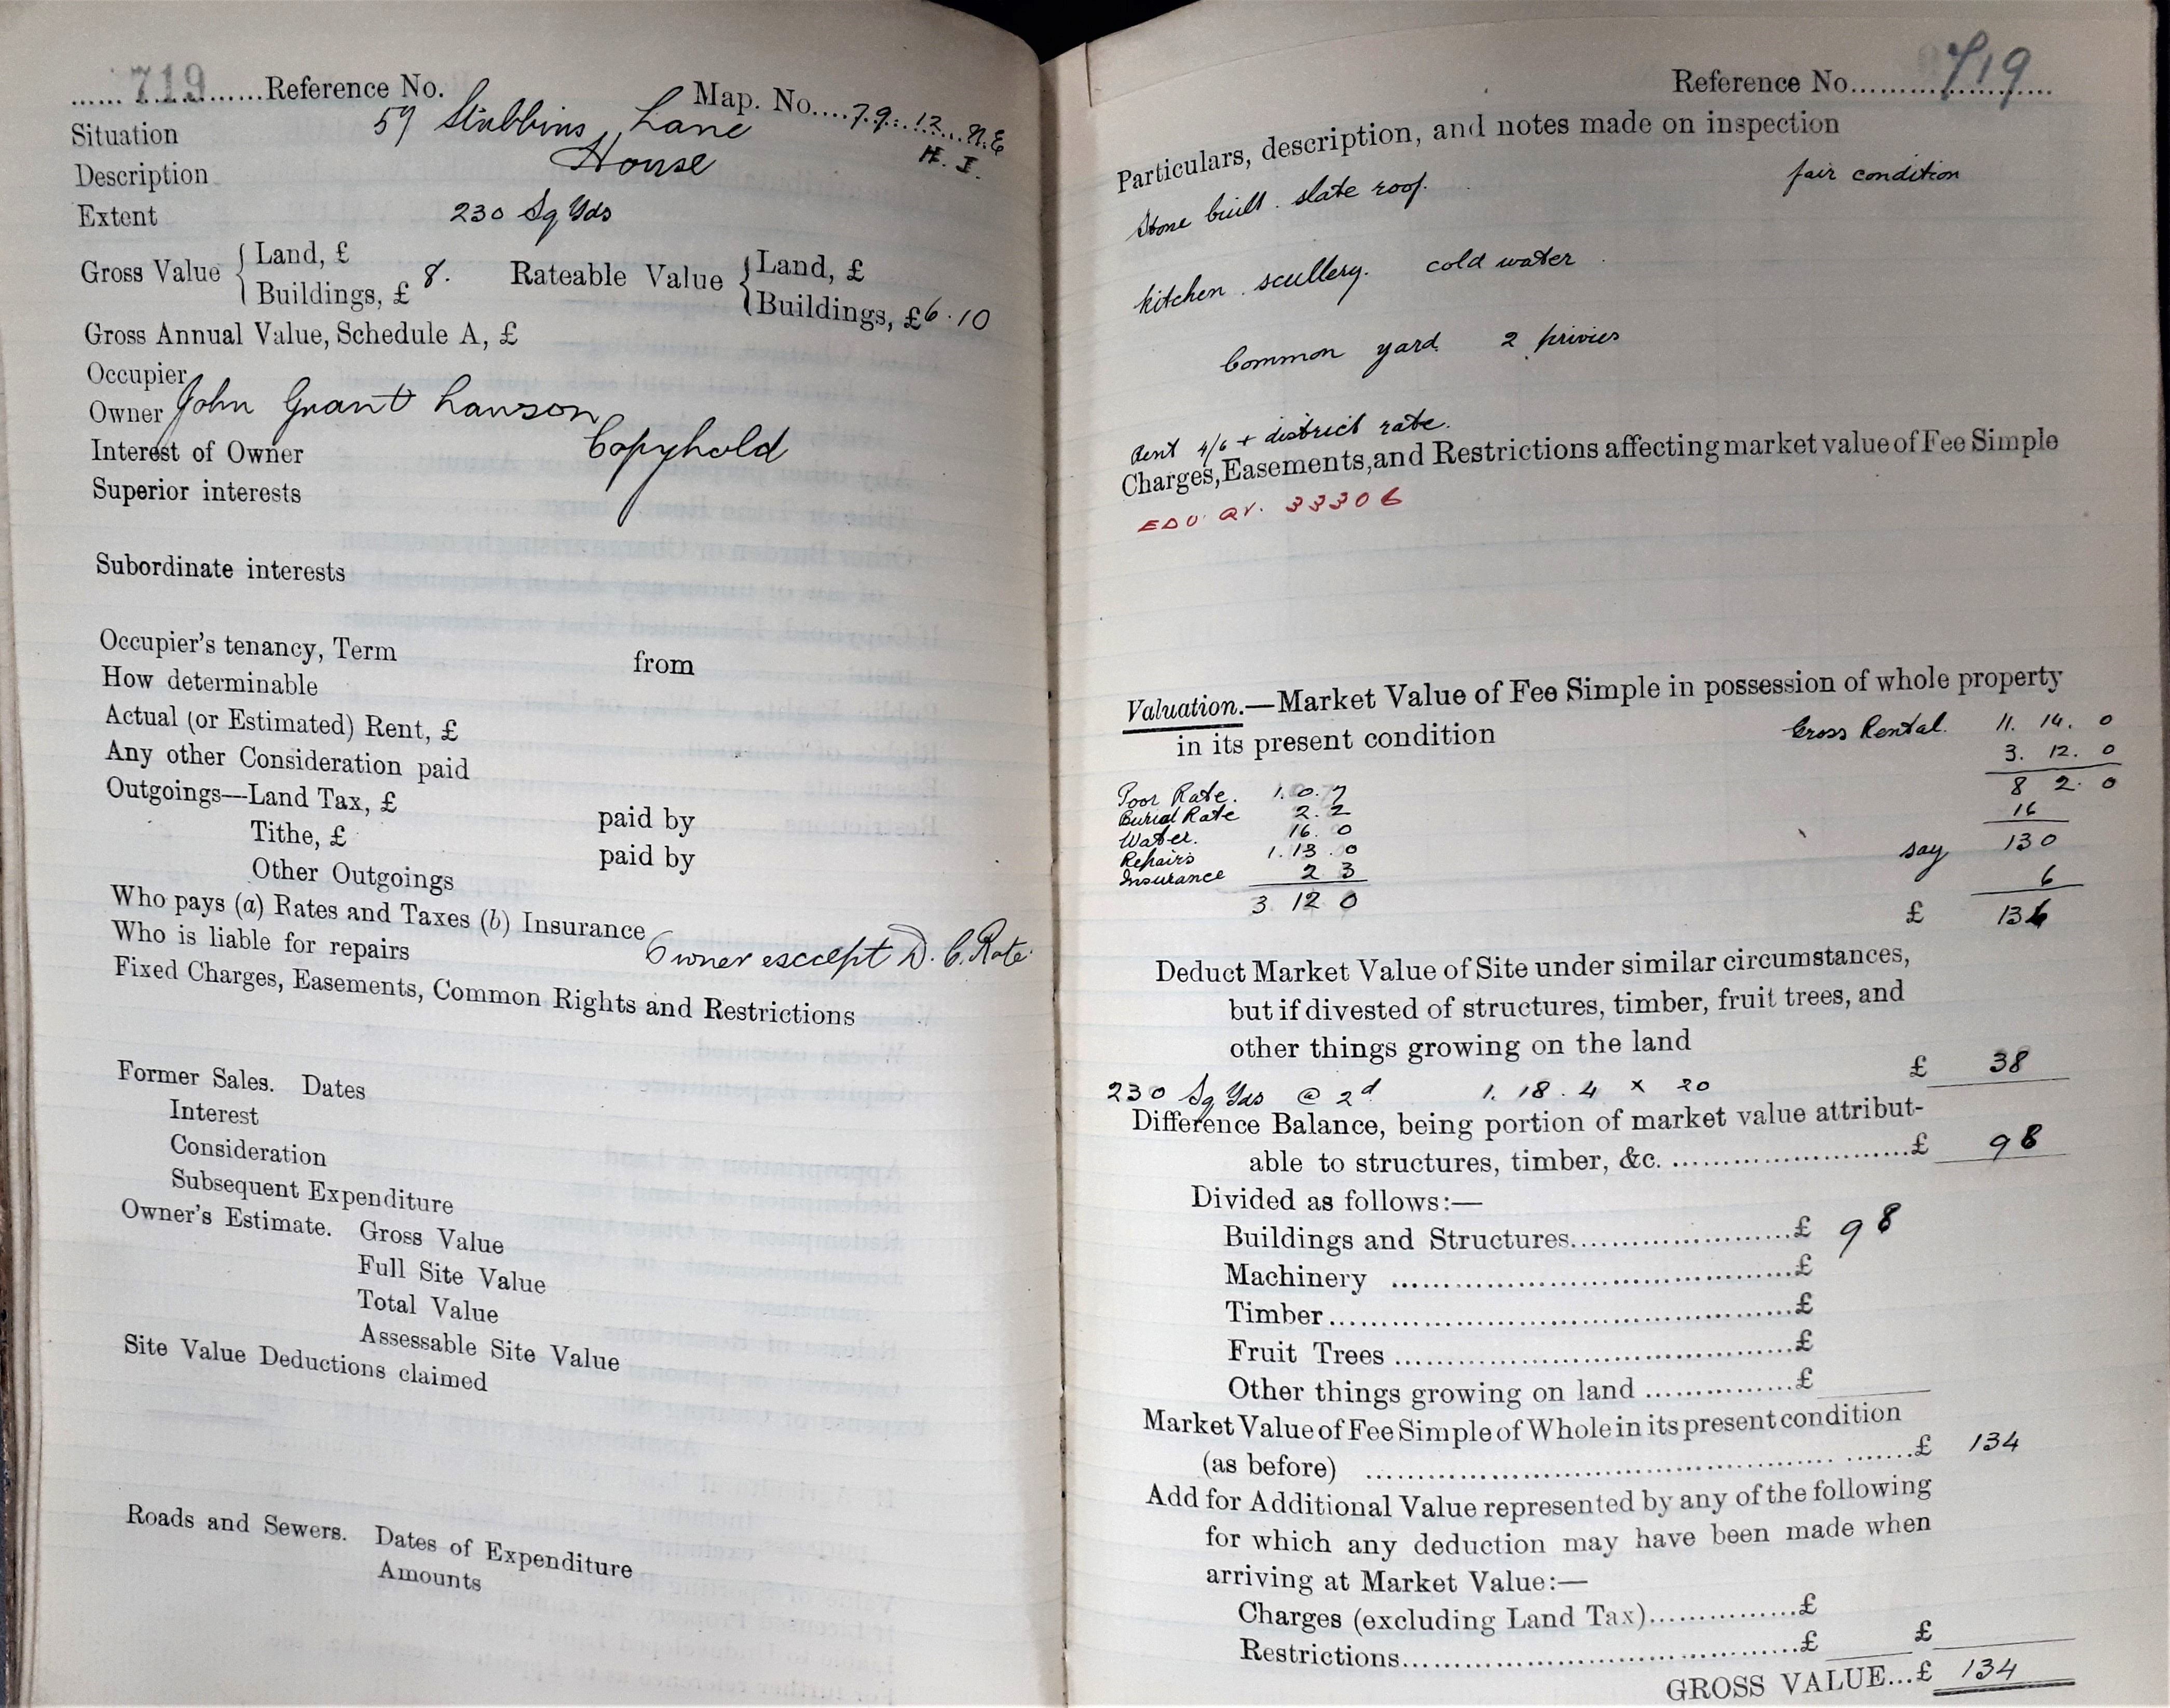 719 Reference No. Map. No. 79. 12 N.E
H. I.
Situation 59 Stubbins Lane
Description House
Extent 230 Sq Yds
Gross Value { Land, £ Rateable Value { Land, £
Buildings, £ 8. Buildings, £6.10
Gross Annual Value, Schedule A, £
Occupier
Owner John Grant Lawson
Interest of Owner Copyhold
Superior interests
Subordinate interests
Occupier's tenancy, Term from
How determinable
Actual (or Estimated) Rent, £
Any other Consideration paid
Outgoings—Land Tax, £ paid by
Tithe, £ paid by
Other Outgoings
Who pays (a) Rates and Taxes (b) Insurance
Who is liable for repairs Owner except D. C. Rate
Fixed Charges, Easements, Common Rights and Restrictions
Former Sales. Dates
Interest
Consideration
Subsequent Expenditure
Owner's Estimate. Gross Value
Full Site Value
Total Value
Assessable Site Value
Site Value Deductions claimed
Roads and Sewers. Dates of Expenditure
Amounts
Reference No. 719
Particulars, description, and notes made on inspection
Stone built. slate roof. fair condition
kitchen. scullery. cold water
Common yard 2 privies
Rent 4/6 + district rate.
Charges, Easements, and Restrictions affecting market value of Fee Simple
EDV. QV. 33306
Valuation.—Market Value of Fee Simple in possession of whole property
in its present condition Gross Rental. 11. 14. 0
3. 12. 0
Poor Rate. 1. 0. 7 8 2. 0
Burial Rate 2. 2 16
Water. 16. 0
Repairs 1. 13. 0 say 130
Insurance 2 3 6
3 12 0 £ 136
Deduct Market Value of Site under similar circumstances,
but if divested of structures, timber, fruit trees, and
other things growing on the land £ 38
230 Sq Yds @ 2d 1. 18. 4 x 20
Difference Balance, being portion of market value attribut-
able to structures, timber, &c. £ 98
Divided as follows:—
Buildings and Structures £ 98
Machinery £
Timber £
Fruit Trees £
Other things growing on land £
Market Value of Fee Simple of Whole in its present condition
(as before) £ 134
Add for Additional Value represented by any of the following
for which any deduction may have been made when
arriving at Market Value:—
Charges (excluding Land Tax) £
Restrictions £ £
GROSS VALUE...£ 134